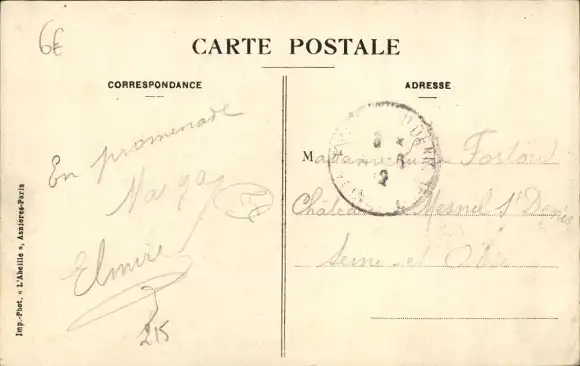 6€
CARTE POSTALE
CORRESPONDANCE
ADRESSE
En promenade
Elmire
215
Madame
Château Mesnil St Denis
Seine et Oise
Imp.-Phot. « L'Abeille », Asnières-Paris